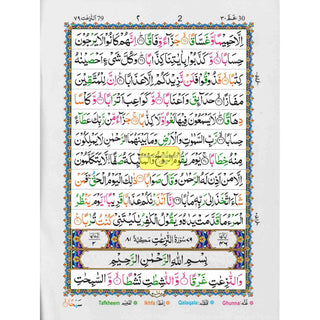 30 عَمَّ ٣٠ 2 ٢ 79 النّٰزِعٰت ٧٩
اِلَّا حَمِيْمًا وَّغَسَّاقًا جَزَآءً وِّفَاقًا اِنَّهُمْ كَانُوْا لَا يَرْجُوْنَ
حِسَابًا وَّكَذَّبُوْا بِاٰيٰتِنَا كِذَّابًا وَكُلَّ شَیْءٍ اَحْصَيْنٰهُ
كِتٰبًا فَذُوْقُوْا فَلَنْ نَّزِيْدَكُمْ اِلَّا عَذَابًا اِنَّ لِلْمُتَّقِيْنَ
مَفَازًا حَدَآئِقَ وَاَعْنَابًا وَّكَوَاعِبَ اَتْرَابًا وَّكَاْسًا
دِهَاقًا لَا يَسْمَعُوْنَ فِيْهَا لَغْوًا وَّلَا كِذّٰبًا جَزَآءً مِّنْ رَّبِّكَ عَطَآءً
حِسَابًا رَّبِّ السَّمٰوٰتِ وَالْاَرْضِ وَمَا بَيْنَهُمَا الرَّحْمٰنِ لَا يَمْلِكُوْنَ
مِنْهُ خِطَابًا يَوْمَ يَقُوْمُ الرُّوْحُ وَالْمَلٰٓئِكَةُ صَفًّا لَّا يَتَكَلَّمُوْنَ
اِلَّا مَنْ اَذِنَ لَهُ الرَّحْمٰنُ وَقَالَ صَوَابًا ذٰلِكَ الْيَوْمُ الْحَقُّ فَمَنْ
شَآءَ اتَّخَذَ اِلٰى رَبِّهٖ مَاٰبًا اِنَّآ اَنْذَرْنٰكُمْ عَذَابًا قَرِيْبًا يَّوْمَ يَنْظُرُ
الْمَرْءُ مَا قَدَّمَتْ يَدٰهُ وَيَقُوْلُ الْكٰفِرُ يٰلَيْتَنِیْ كُنْتُ تُرٰبًا
سُوْرَةُ النّٰزِعٰتِ مَكِّيَّةٌ ٨١
بِسْمِ اللّٰهِ الرَّحْمٰنِ الرَّحِيْمِ
وَالنّٰزِعٰتِ غَرْقًا وَّالنّٰشِطٰتِ نَشْطًا وَّالسّٰبِحٰتِ
Tafkheem Ikhfa Qalqala Ghunna